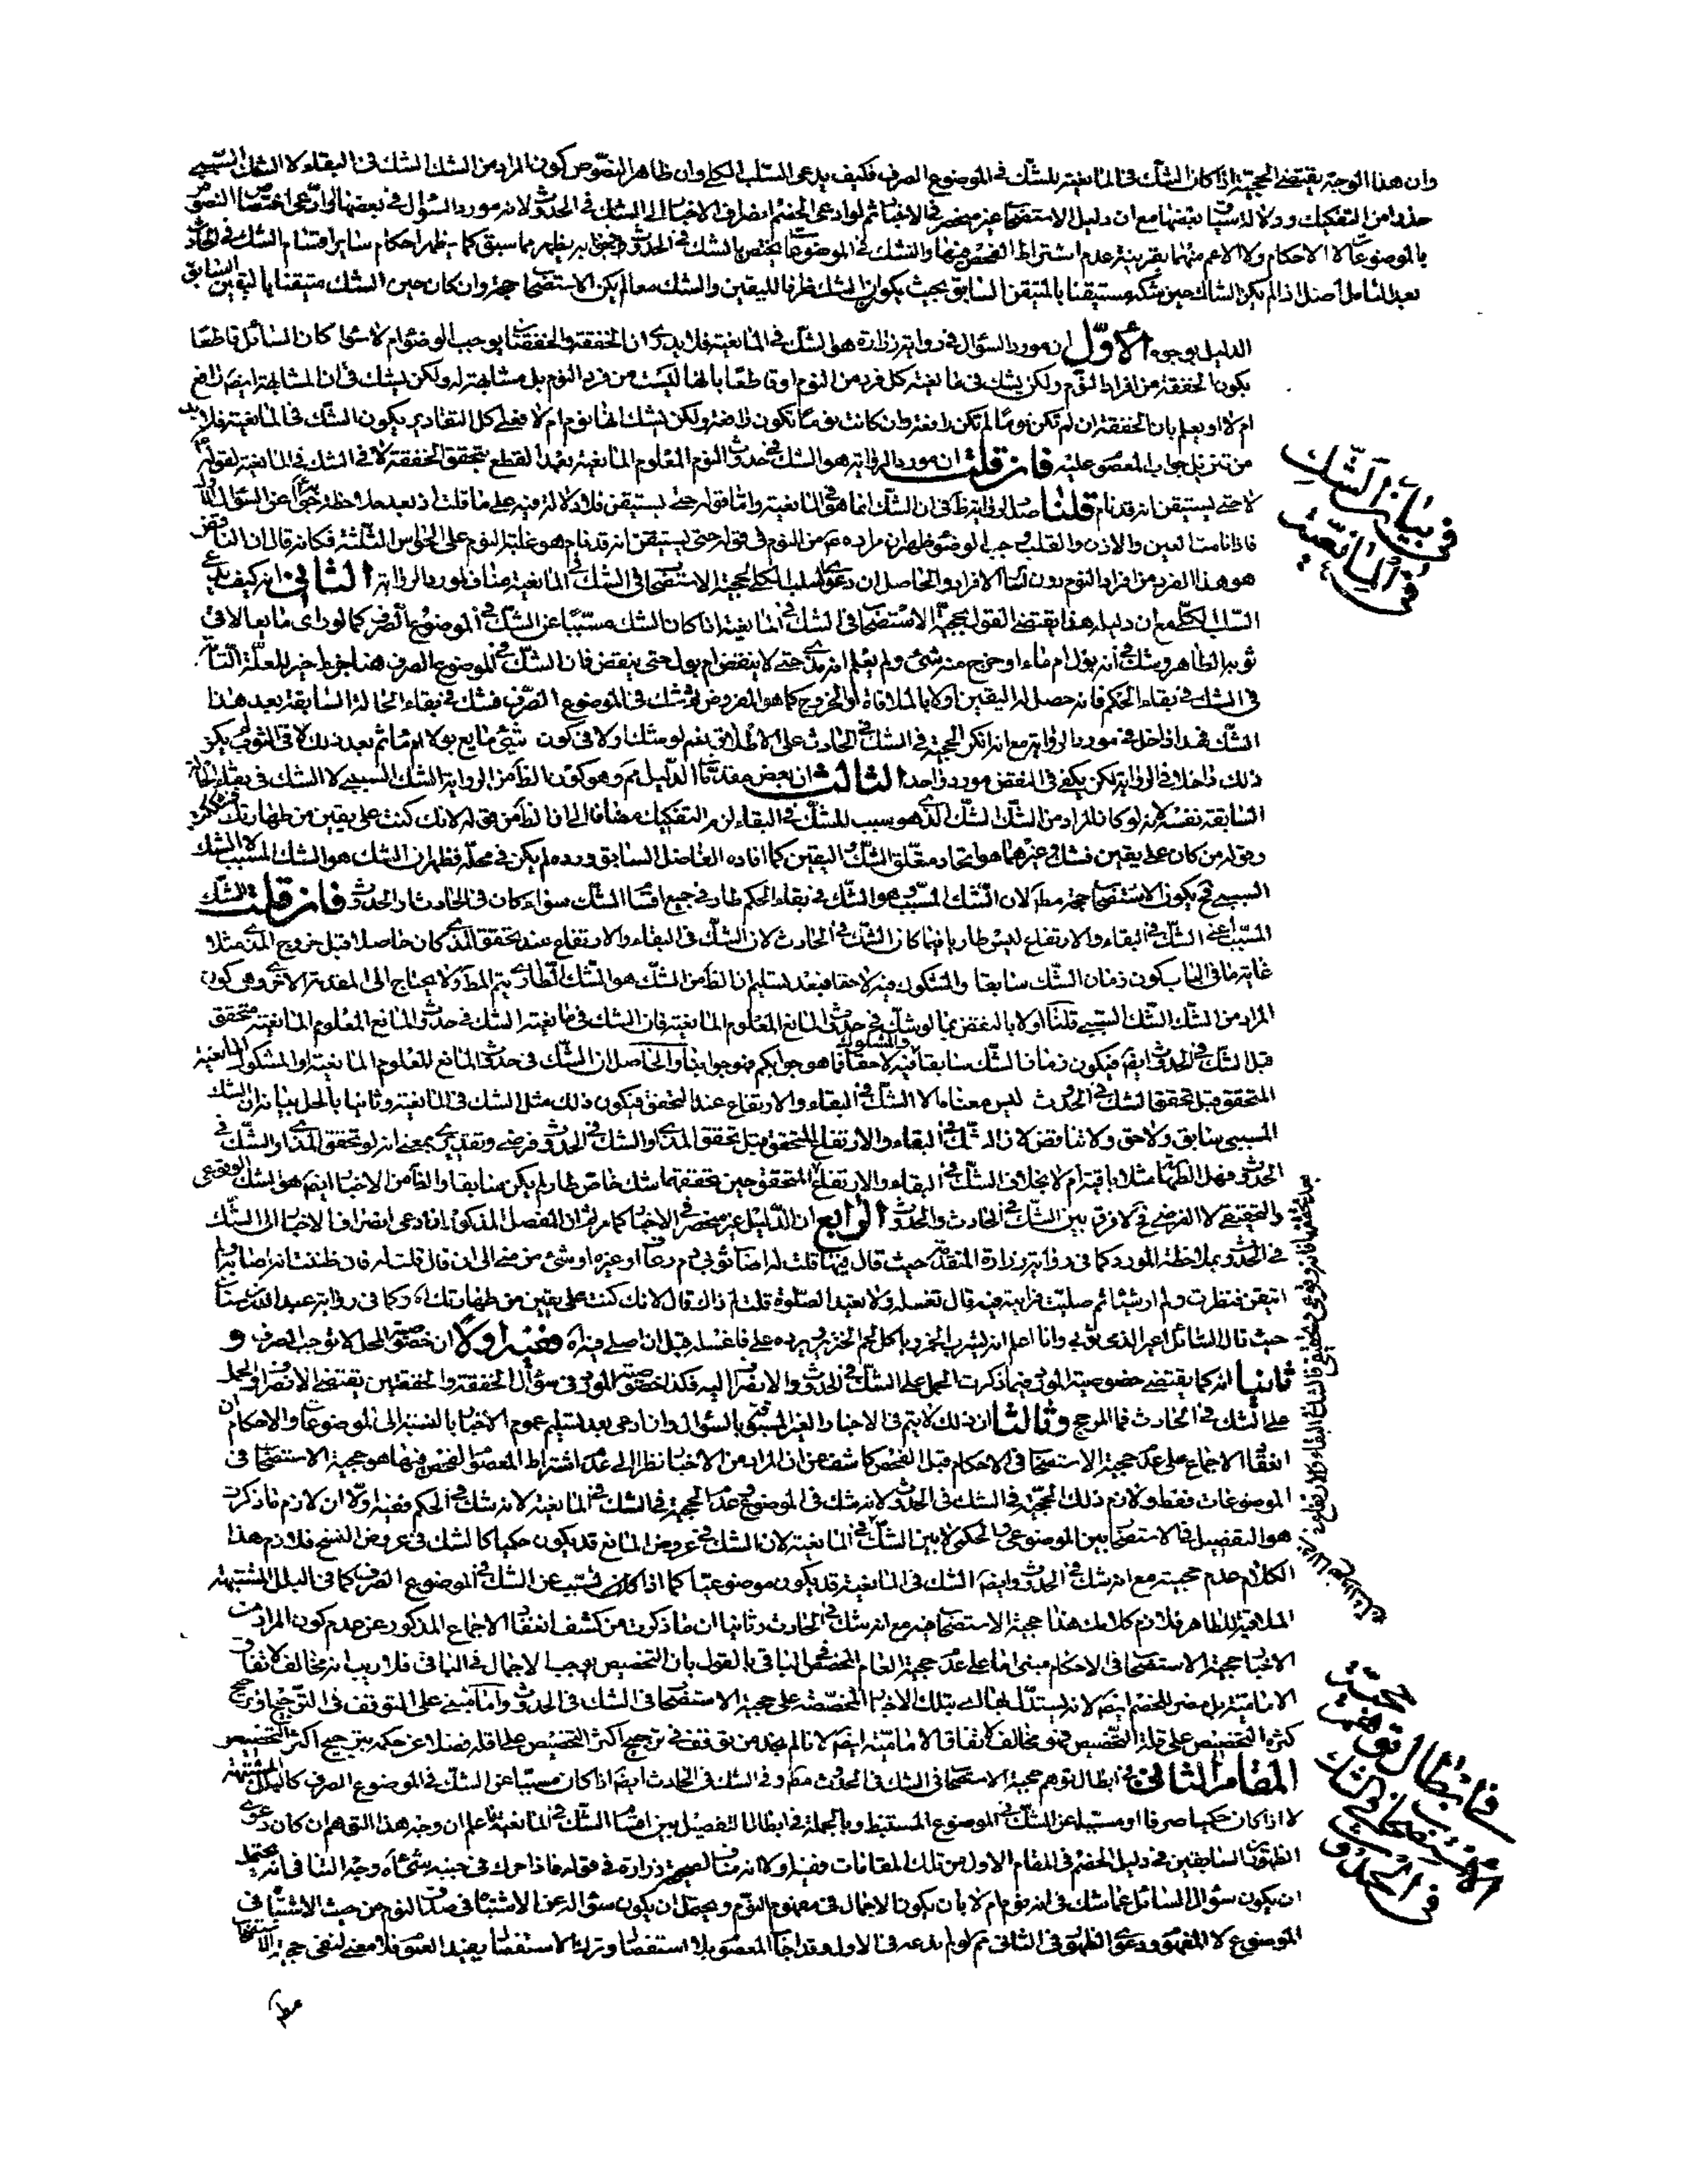 وان هذا الوجه يقتضے الحجية اذا كان الشك فی المانعية للشك فی الموضوع الصرف فكيف يدعی السلب الكلے وان ظاهر النصوص كون المراد من الشك الشك فی البقاء لا الشك السببے
حذرا من التفكيك ودلالة بعضها مع ان دليل الاستصحاب غير منحصر فی الاخبار ثم لو ادعی الخصم انصراف الاخبار الی الشك فی الحدوث لانه مورد السؤال فی بعضها او ادعی اختصاص النصوص
بالموضوعات لا الاحكام ولا الاعم منهما بقرينة عدم اشتراط الفحص فيها والشك فی الموضوعات يختص بالشك فی الحدوث يظهر مما سبق كما يظهر احكام ساير اقسام الشك فی الحادث
بعد التامل اصل اذا لم يكن الشاك حين شكه مستيقنا بالمتيقن السابق بحيث يكون الشك ظرفا لليقين والشك معا لم يكن الاستصحاب حجة وان كان حين الشك متيقنا باليقين السابق
الدليل بوجوه الاول ان مورد السؤال فی رواية زرارة هو الشك فی المانعية فلا يدری ان الخفقة والخفقتان يوجب الوضوء ام لا سواء كان السائل قاطعا
بكون الخفقة من افراد النوم ولكن يشك فی مانعية كل فرد من النوم او قاطعا بانها ليست من فرد النوم بل مشابهة له ولكن يشك فی ان المشابهة ايضا رافع
ام لا او يعلم بان الخفقة ان لم تكن نوما لم تكن رافعة وان كانت نوما تكون رافعة ولكن يشك انها نوم ام لا فعلے كل التقادير يكون الشك فی المانعية فلا بد
من تنزيل جواب المعصوم عليه فان قلت ان مورد الرواية هو الشك فی حدوث النوم المعلوم المانعية بعد القطع بتحقق الخفقة لا فی الشك فی المانعية لقوله
لا حتے يستيقن انه قد نام قلنا صدر الرواية ظ فی ان الشك انما هو فی المانعية واما قوله حتے يستيقن فلا دلالة فيه علے ما قلت اذ بعد ملاحظة
فاذا نامت العين والاذن والقلب وجب الوضوء ظهر ان مراده من النوم فی قوله حتی يستيقن انه قد نام هو غلبة النوم علی الحواس الثلثة فكانه قال ان الناقض
هو هذا الفرد من افراد النوم دون الافراد والحاصل ان دعوی السلب الكلے لحجية الاستصحاب فی الشك فی المانعية مناف لمورد الرواية الثانی انه كيف يدعے
السلب الكلے مع ان دليله هذا يقتضے القول بحجية الاستصحاب فی الشك فی المانعية اذا كان الشك مسببا عن الشك فی الموضوع الصرف كما لو رای مايعا لاقی
ثوبه الطاهر وشك فی انه بول ام ماء او خرج منه شیء ولم يعلم انه مذی حتے لا ينقض ام بول حتی ينقض فان الشك فی الموضوع الصرف هنا
فی الشك فی بقاء الحكم فانه حصل له اليقين اولا بالملاقاة او الخروج كما هو المفروض ثم شك فی الموضوع الصرف فشك فی بقاء الحالة السابقة بعد هذا
الشك
ذلك داخلا فی الرواية لكن يكفی فی النقض مورد واحد الثالث ان بعض مقدمات الدليل مم وهو كون الظ من الرواية الشك السببے لا الشك فی بقاء الحالة
السابقة نفسه لانه لو كان المراد من الشك الشك الذی هو سبب للشك فی البقاء لزم التفكيك مضافا الی ان الظ من قوله لانك كنت علی يقين من طهارتك فشككت
وقوله من كان علے يقين فشك وغيرهما هو اتحاد متعلق الشك واليقين كما افاده الفاضل السابق ورده لم يكن فی محله فظهر ان الشك هو الشك المسبب لا الشك
السببے فح يكون الاستصحاب حجة مط لان الشك المسبب وهو الشك فی بقاء الحكم طار فی جميع اقسام الشك سواء كان فی الحادث او الحدوث فان قلت الشك
المسبب اعنے الشك فی البقاء والارتفاع ليس طاريا فيما كان الشك فی الحادث لان الشك فی البقاء والارتفاع عند تحقق المذی كان حاصلا قبل خروج المذی مثلا
غاية ما فی الباب كون زمان الشك سابقا والمشكوك فيه لاحقا فبعد تسليم ان الظ من الشك هو الشك الطاری يتم المط ولا يحتاج الی المقدمة الاخری وهو كون
المراد من الشك الشك السببے قلنا اولا بالنقض بما لو شك فی حدوث المانع المعلوم المانعية فان الشك فی حدوث المانع المعلوم المانعية متحقق
قبل الشك فی الحدوث ايضا فيكون زمان الشك سابقا والمشكوك فيه لاحقا فما هو جوابكم فهو جوابنا والحاصل ان الشك فی حدوث المانع المعلوم المانعية او المشكوك المانعية
المتحقق قبل تحقق الشك فی الحدوث ليس معناه الا الشك فی البقاء والارتفاع عند التحقق فيكون ذلك مثل الشك فی المانعية وثانيا بالحل بيانه ان الشك
المسببی سابق ولاحق ولا تناقض لان الشك فی البقاء والارتفاع المتحقق قبل تحقق المذی او الشك فی الحدوث فرضی وتقديری بمعنے انه لو تحقق المذی او الشك فی
الحدوث فهل الطهارة مثلا باقية ام لا بخلاف الشك فی البقاء والارتفاع المتحقق حين تحققهما شك خاص طار لم يكن سابقا والظ من الاخبار ايضا هو الشك الوقوعی
والتحقيقے لا الفرضے فح لا فرق بين الشك فی الحادث والحدوث الرابع ان الدليل غير منحصر فی الاخبار كما مر ثم ان المفصل المذكور اذا ادعی انصراف الاخبار الی الشك
فی الحدوث بملاحظة المورد كما فی رواية زرارة المتقدمة حيث قال فيها قلت له اصاب ثوبی دم رعاف او غيره او شیء من منی الی ان قال قلت له فان ظننت انه اصابه ولم
اتيقن فنظرت ولم ار شيئا ثم صليت فرايته فيه قال تغسله ولا تعيد الصلوة قلت لم ذاك قال لانك كنت علی يقين من طهارتك اه وكما فی رواية عبد الله بن سنان
حيث قال السائل اعير الذمی ثوبی وانا اعلم انه يشرب الخمر وياكل لحم الخنزير ويرده علے فاغسله قبل ان اصلی فيه اه ففيه اولا ان خصوصية المحل لا توجب الصرف و
ثانيا انه كما يقتضے خصوصية المورد فيما ذكرت الحمل علی الشك فی الحدوث والانصراف اليه فكذا خصوصية المورد فی سؤال الخفقة والخفقتين يقتضے الانصراف والحمل
علے الشك فی الحادث فما المرجح وثالثا ان ذلك لا يتم فی الاخبار الغير المسبوق بالسؤال وان ادعی بعد تسليم عموم الاخبار بالنسبة الی الموضوعات والاحكام ان
انعقاد الاجماع علی عدم حجية الاستصحاب فی الاحكام قبل الفحص كاشف عن ان المراد من الاخبار نظرا الی عدم اشتراط المعصوم الفحص فيها هو حجية الاستصحاب فی
الموضوعات فقط ولازم ذلك الحجية فی الشك فی الحدوث لانه شك فی الموضوع وعدم الحجية فی الشك فی المانعية لانه شك فی الحكم ففيه اولا ان لازم ما ذكرت
هو التفصيل فی الاستصحاب بين الموضوعی والحكمی لا بين الشك فی المانعية لان الشك فی عروض المانع قد يكون حكميا كالشك فی عروض النسخ فلازم هذا
الكلام عدم حجيته مع انه شك فی الحدوث وايضا الشك فی المانعية قد يكون موضوعيا كما اذا كان تسبب عن الشك فی الموضوع الصرف كما فی البلل المشتبهة
الملاقية للطاهر فلازم كلامك هذا حجية الاستصحاب فيه مع انه شك فی الحادث وثانيا ان ما ذكرت من كشف انعقاد الاجماع المذكور عن عدم كون المراد من
الاخبار حجية الاستصحاب فی الاحكام مبنی اما علی عدم حجية العام المخصص فی الباقی بالقول بان التخصيص يوجب الاجمال فی الباقی فلا ريب انه مخالف لاتفاق
الامامية بل مضر للخصم ايضا لانه يستدل بتلك الاخبار المخصصة علی حجية الاستصحاب فی الشك فی الحدوث واما مبنی علی التوقف فی الترجيح او ترجيح
كثرة التخصيص علی قلة التخصيص فهو مخالف لاتفاق الامامية ايضا لانا لم نجد من توقف فی ترجيح اكثر التخصيص علی اقله فضلا عن حكمه بترجيح اكثر التخصيص
المقام الثانی فی ابطال توهم حجية الاستصحاب فی الشك فی الحدوث مط وفی الشك فی الحادث ايضا اذا كان مسببا عن الشك فی الموضوع الصرف كالبلل المشتبهة
لا اذا كان حكميا صرفا او مسببا عن الشك فی الموضوع المستنبط وبالجملة فی ابطال التفصيل بين اقسام الشك فی المانعية اعلم ان وجه هذا التوهم ان كان دعوی
الظهورين السابقين فی دليل الخصم فی المقام الاول من تلك المقامات ففيه اولا انه مناف لصحيحة زرارة فی قوله فاذا حرك فی جنبه شیء اه وجه التنافی انه يحتمل
ان يكون سؤال السائل عما شك فی انه نوم ام لا بان يكون الاجمال فی مفهوم النوم ويحتمل ان يكون سؤاله عن الاشتباه فی صدق النوم من حيث الاشتباه فی
الموضوع لا المفهوم ودعوی الظهور فی الثانی مم لو لم ندعه فی الاول وقد اجاب المعصوم بلا استفصال وترك الاستفصال يفيد العموم فلا معنے لنفی حجية الاستصحاب
فی بيان الشك
فی المانعية
فی ابطال توهم حجية
الاستصحاب فی الشك
فی الحدوث